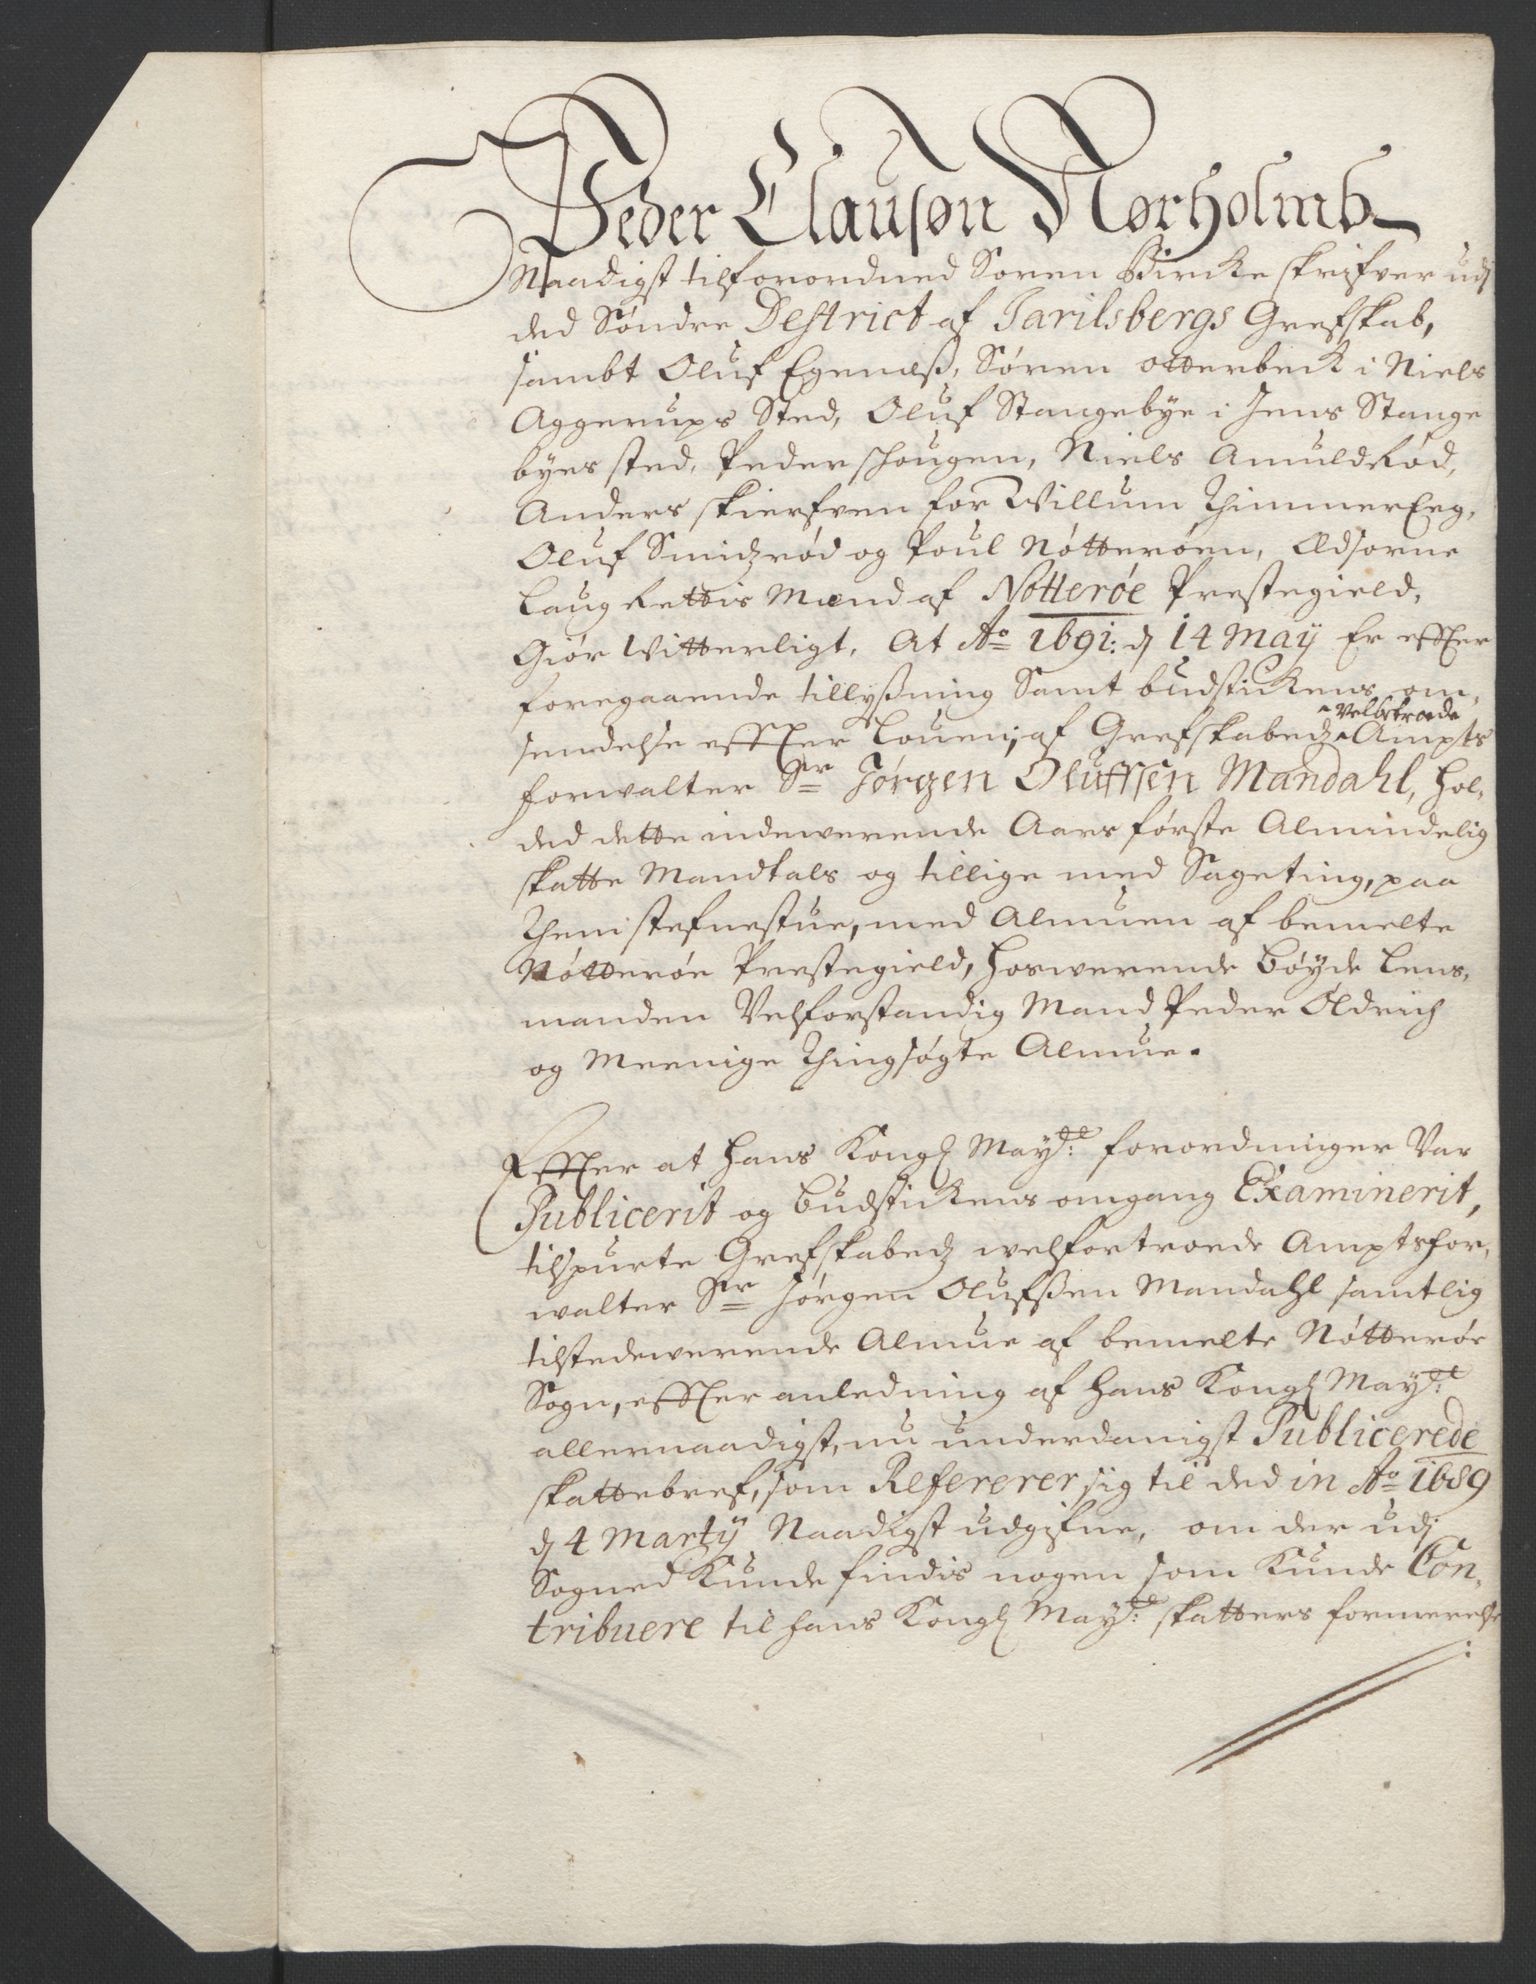 Peder Clausøn Nørholmb
Naadigst tilforordned Soren Birche skrifver udj
ded Søndre Destrict af Jarilsbergs Grefskab,
sambt Oluf Egenæß, Søren Otterbeck i Niels
Aggerups Sted, Oluf Stangebye i Jens Stange
byes sted, Peder Schougen, Niels Amuldrød,
Anders skierfven for Willum ThimmerEeg,
Oluf Smidzrød og Poul Nøtterøen, Edsorne
Laug Rettis Mænd af Notterøe Prestegield,
Giør Witterligt, At Ao 1691: d 14 Maÿ Er effter
foregaaende tillyßning Samt budstickens om,
sendelse effter Louen, af Grefskabedz Velbetroede Ampts
forwalter Sr Jørgen Oluffsen Mandahl, hol,
ded dette indewerende Aars første Almindelig
skatte Mandtals og tillige med Sageting, paa
Themi stefnestue, med Almuen af bemelte
Nøtterøe Prestegield, hoswerende Bøyde Lens,
manden Velforstandig Mand Peder Oldrich
og Meenige Thingsøgte Almue.
Effter at hans Kongl Mayts: forordninger Var
Publicerit og Budstickens omgang Examinerit,
tilspurte Grefskabedz welfortroede Amptsfor,
walter Sr Jørgen Olufßen Mandahl samtlig
tilstedewerende Almue af bemelte Nøtterøe
Sogn, effter anledning af hans Kongl Mayts:
allernaadigst, nu underdanigst Publicerede
skattebref, som Refererer sig til ded in Ao 1689
d 4 Martÿ Naadigst udgifne, om der udj
Sogned Kunde findis nogen som Kunde Con,
tribuere til hans Kongl Mayts: skatters formerelse